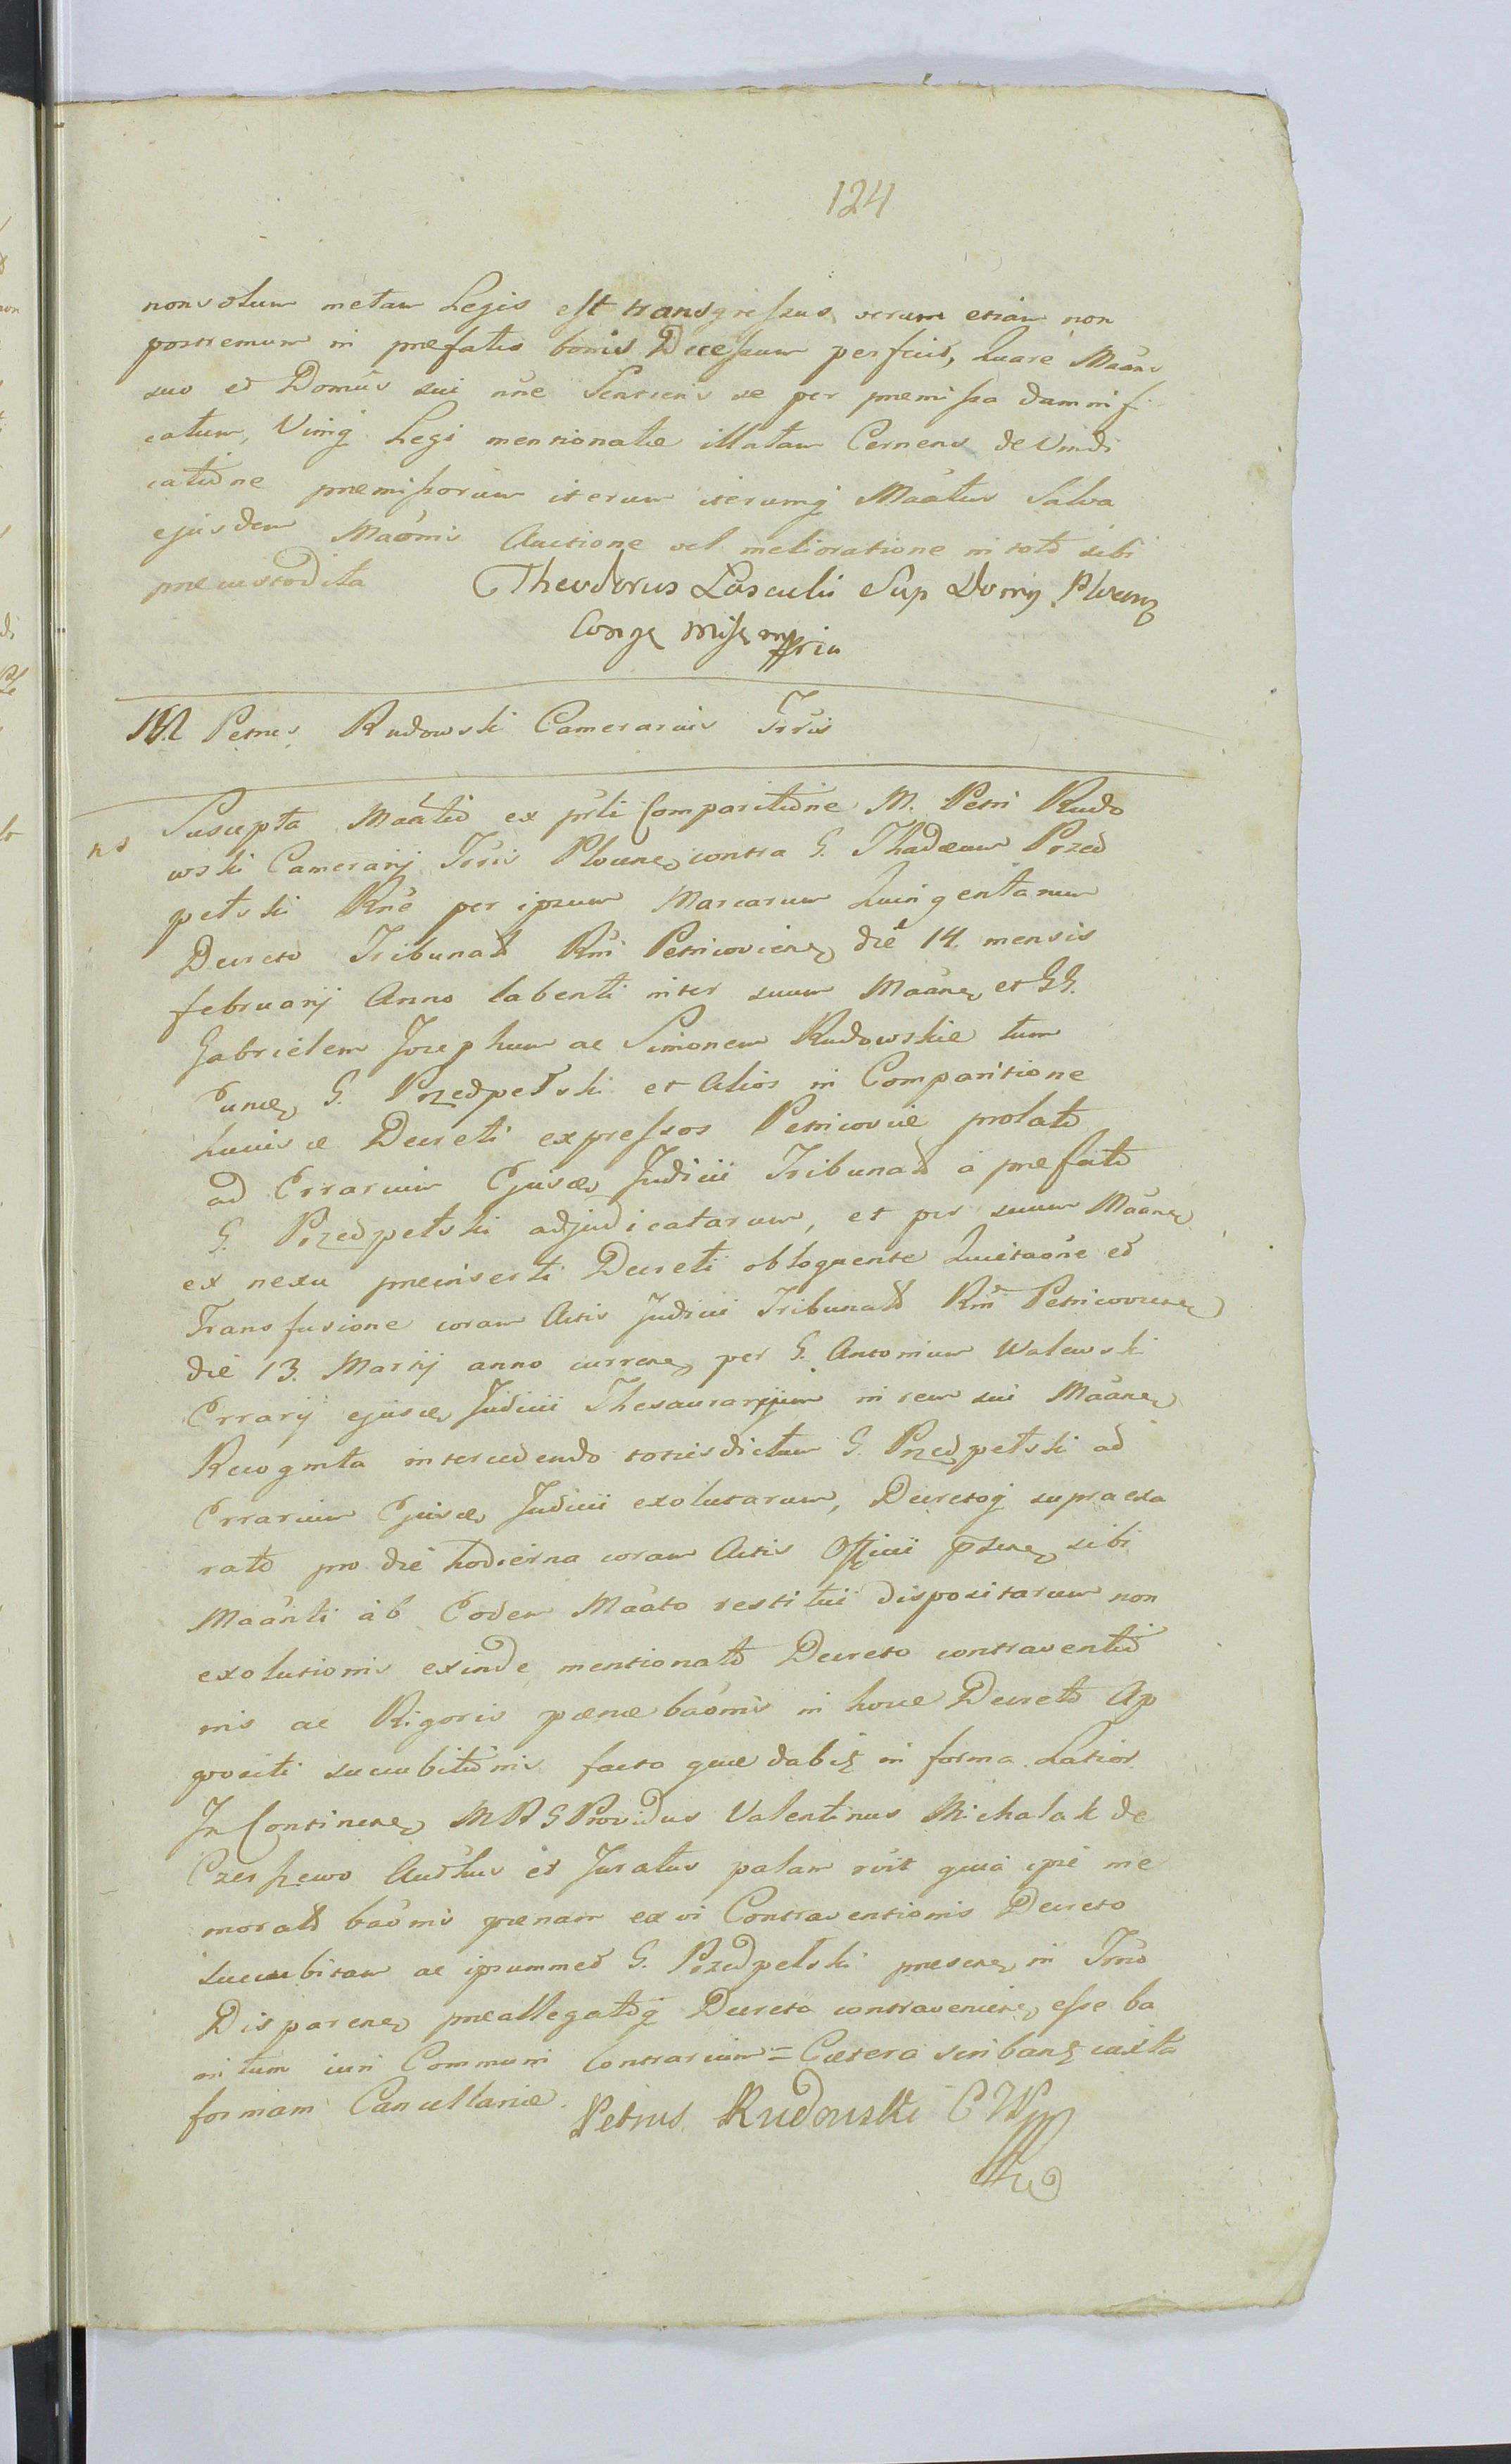 124
non solum metam Legis est transgressus verum etiam non
postremum in præfatis bonis Decessum perfecit, Quare Maans
suo et Domûs sui nñe Sentiens se per præmissa damnifi
catum, Vimq Legi mentionatæ illatam Cernens de Vindi
catione præmissorum iterum iterumq Maatur Salva
ejusdem Maõnis Auctione vel melioratione in toto sibi
præcustodita Theodorus Lasculii Sup Domy Plocens
Cong Miss mppria
M Petrus Rudowski Camerarius Trris
Suscepta Maãtio ex pñti Comparitione M. Petri Rudo
wski Camerarij Trris Plocens contra G. Thadæum Przed
petski Rñe per ipsum Marcarum Quingentarum
Decreto Tribunal Rñi Petricoviens die 14 mensis
februarij Anno labenti inter suum Maans et GG.
Gabrielem Josephum ac Simonem Rudowskie tum
Eund G. Przedpetski et Alios in Comparitione
huius ce Decreti expressos Petricoviæ prolato
ad Errarium Ejusd Judicii Tribunal a præfato
G. Przedpetski adjudicatarum, et per suum Maans
ex nexu præinserti Decreti obloquente Quietaõne et
Transfusione coram Actis Judicii Tribunal Rñi Petricoviens
die 13. Martij anno currens per G. Antonium Walewski
Errarij ejusd Judicii Thesaurarium in rem sui Maans
Recognita intercedendo totiesdictum G. Przedpetski ad
Errarium Ejusd Judicii exolutarum, Decretoq supraexa
rato pro die hodierna coram Actis Officii psens sibi
Maanti ab Eodem Maato restitui dispositarum non
exolutionis exinde mentionato Decreto contraventio
nis ac Rigoris pœnæ baõnis in hocce Decreto Ap
positi succubitionis facto quæ dabit in forma Latiori
In Continens MRG Providus Valentinus Michalak de
Czerszewo Audhus et Juratus palam rûit quia ipse me
morat baõnis pœnam ex vi Contraventionis Decreto
succubitam ac ipsummet G. Przedpetski presens in Trno
Disparens præallegatoq Decreto contraveniens esse ba
nitum iuri Communi Contrarium = Cætera scribant iuxta
formam Cancellariæ. Petrus Rudowski C W